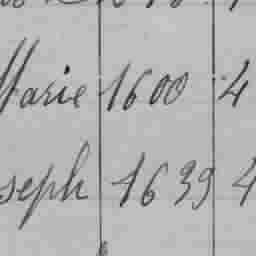 Marie 1600 4
seph 1639 4